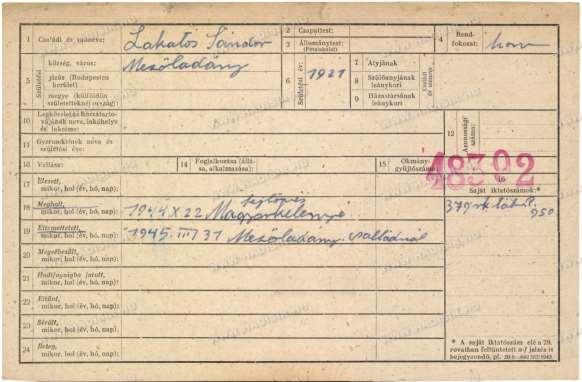 1 Családi és utóneve: Lakatos Sándor
2 Csapattest:
3 Állománytest: (Pótalakulat)
4 Rendfokozat: honv
5 Születési
község, város: Mezőladány
járás (Budapesten kerület)
megye (külföldön születetteknél ország):
6 Születési év: 1921
7 Atyjának
8 Szülőanyjának leánykori
9 Házastársának leánykori
Családi és utóneve
10 Legközelebbi hozzátartozójának neve, lakóhelye és lakcíme:
11 Gyermekének neve és születési éve:
12 Azonossági száma:
48302
13 Vallása:
14 Foglalkozása (állása, alkalmazása):
15 Okmánygyűjtőszáma:
16
Saját iktatószámok:*
17 Elesett, mikor, hol (év, hó, nap):
18 Meghalt, mikor, hol (év, hó, nap): 1944 X 22
19 Eltemettetett, mikor, hol (év, hó, nap): 1945. III 31 Mezőladány
20 Megsebesült, mikor, hol (év, hó, nap):
21 Hadifogságba jutott, mikor, hol (év, hó, nap):
22 Eltűnt, mikor, hol (év, hó, nap):
23 Sérült, mikor, hol (év, hó, nap):
24 Beteg, mikor, hol (év, hó, nap):
950
* A saját iktatószám elé a 29. rovatban feltüntetett a-f jelzés is bejegyzendő, pl.